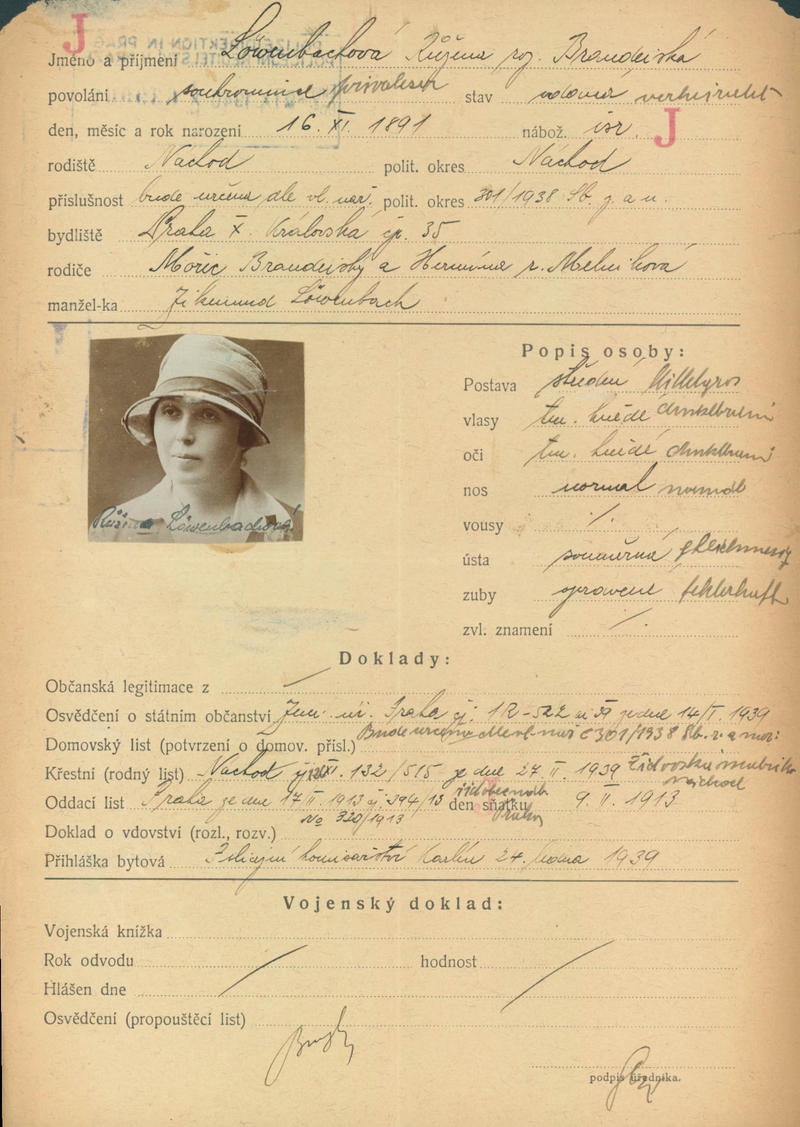 J
Jméno a příjmení Löwenbachová Růžena roz. Brandeiská
povolání soukromnice stav vdova verheiratet
den, měsíc a rok narození 16. XI. 1891 nábož. isr. J
rodiště Náchod polit. okres Náchod
příslušnost bude určena dle vl. nař. polit. okres 301/1938 Sb. z. a n.
bydliště Praha X. Královská čp. 35
rodiče Mořic Brandeiský a Hermína r. Melniková
manžel-ka Zikmund Löwenbach
Růžena Löwenbachová
Popis osoby:
Postava střední Mittelgross
vlasy tm. hnědé dunkelbraun
oči tm. hnědé dunkelbraun
nos normal normal
vousy /.
ústa souměrná
zuby spravené
zvl. znamení /.
Doklady:
Občanská legitimace z
Osvědčení o státním občanství Praha čj. 1R-522 ai 39 ze dne 14/I. 1939
Domovský list (potvrzení o domov. přísl.) Bude určeno 301/1938 Sb. z. a nař.
Křestní (rodný list) Náchod 132/515 ze dne 27. II. 1939 Židovská matrika Náchod
Oddací list Praha ze dne 17 II. 1913 čj. 394/13 den sňatku 9. II. 1913
No 320/1913
Doklad o vdovství (rozl., rozv.)
Přihláška bytová Policejní komisařství Karlín 24. února 1939
Vojenský doklad:
Vojenská knížka
Rok odvodu hodnost
Hlášen dne
Osvědčení (propouštěcí list)
podpis úředníka.